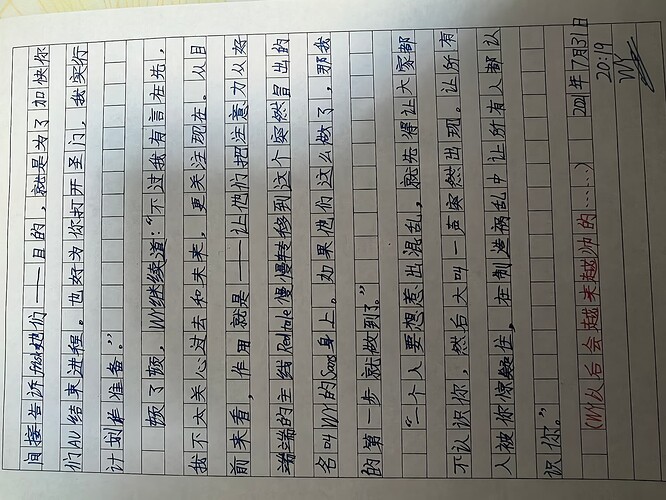 间接告诉frisk她们——目的，就是为了加快你
们AU结束进程。也好为你打开圣门，我实行
计划作准备。”
顿了顿，WY继续道：“不过我有言在先，
我不太关心过去和未来，更关注现在。从目
前来看，作用就是——让他们把注意力从好
端端的主线Redtale慢慢转移到这个突然冒出的
名叫WY的Sans身上。如果他们这么做了，那我
的第一步就做到了。”
“一个人要想惹出混乱，就先得让大家都
不认识你，然后大叫一声突然出现。让所有
人被你惊触住，在制造祸乱中让所有人都认
识你。”
(WY以后会越来越帅的……)
2021年7月31日
20:19
WY